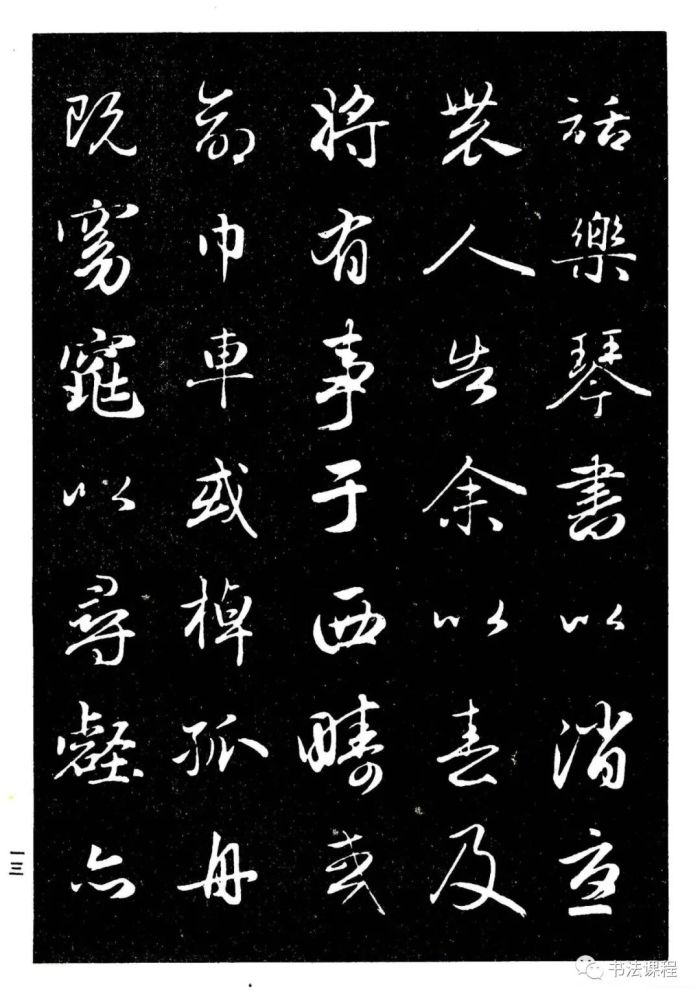 話樂琴書以消憂
農人告余以春及
將有事于西疇或
命巾車或棹孤舟
既窈窕以尋壑亦
一三
书法课程